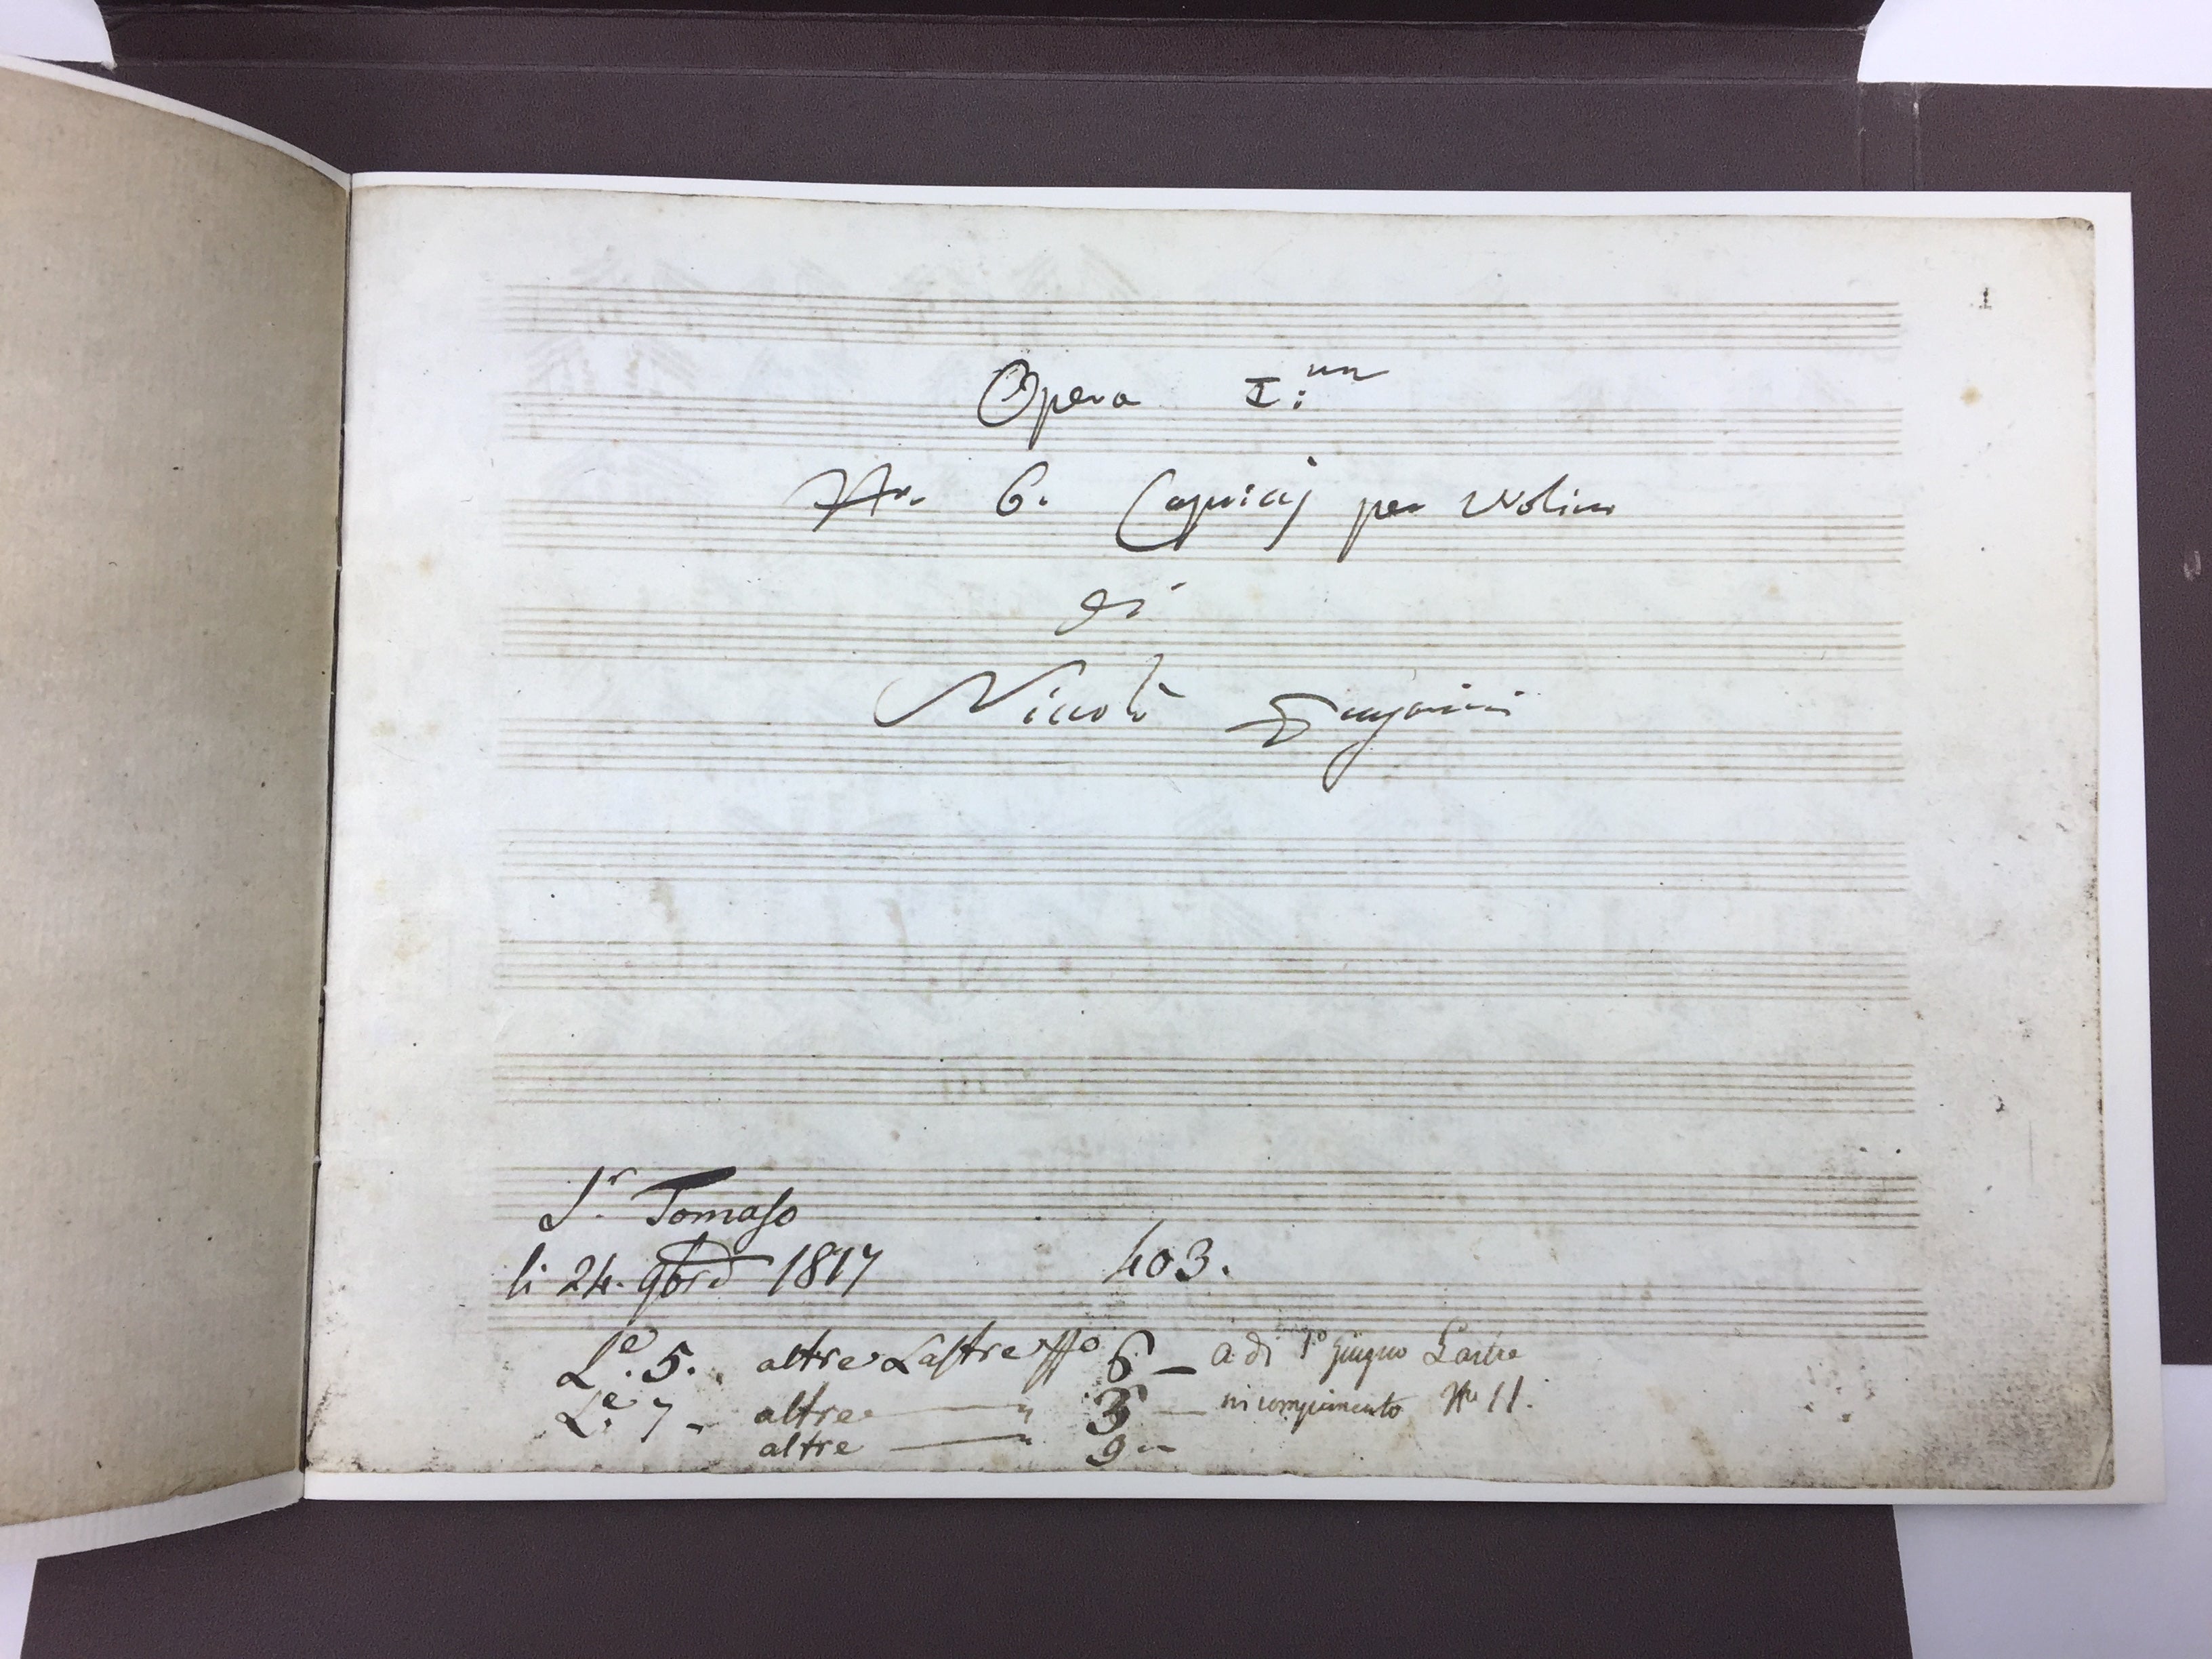 1
Opera I:ma
No. 6. Capricj per Violino
di
Nicolò Paganini
Sr. Tomaso
li 24. 9bre 1817 403.
Le. 5. altre Lastre No 6 — a di 1o Giugno Lastre
Le. 7 — altre — " 3 — in compimento No 11.
altre — " 9 —